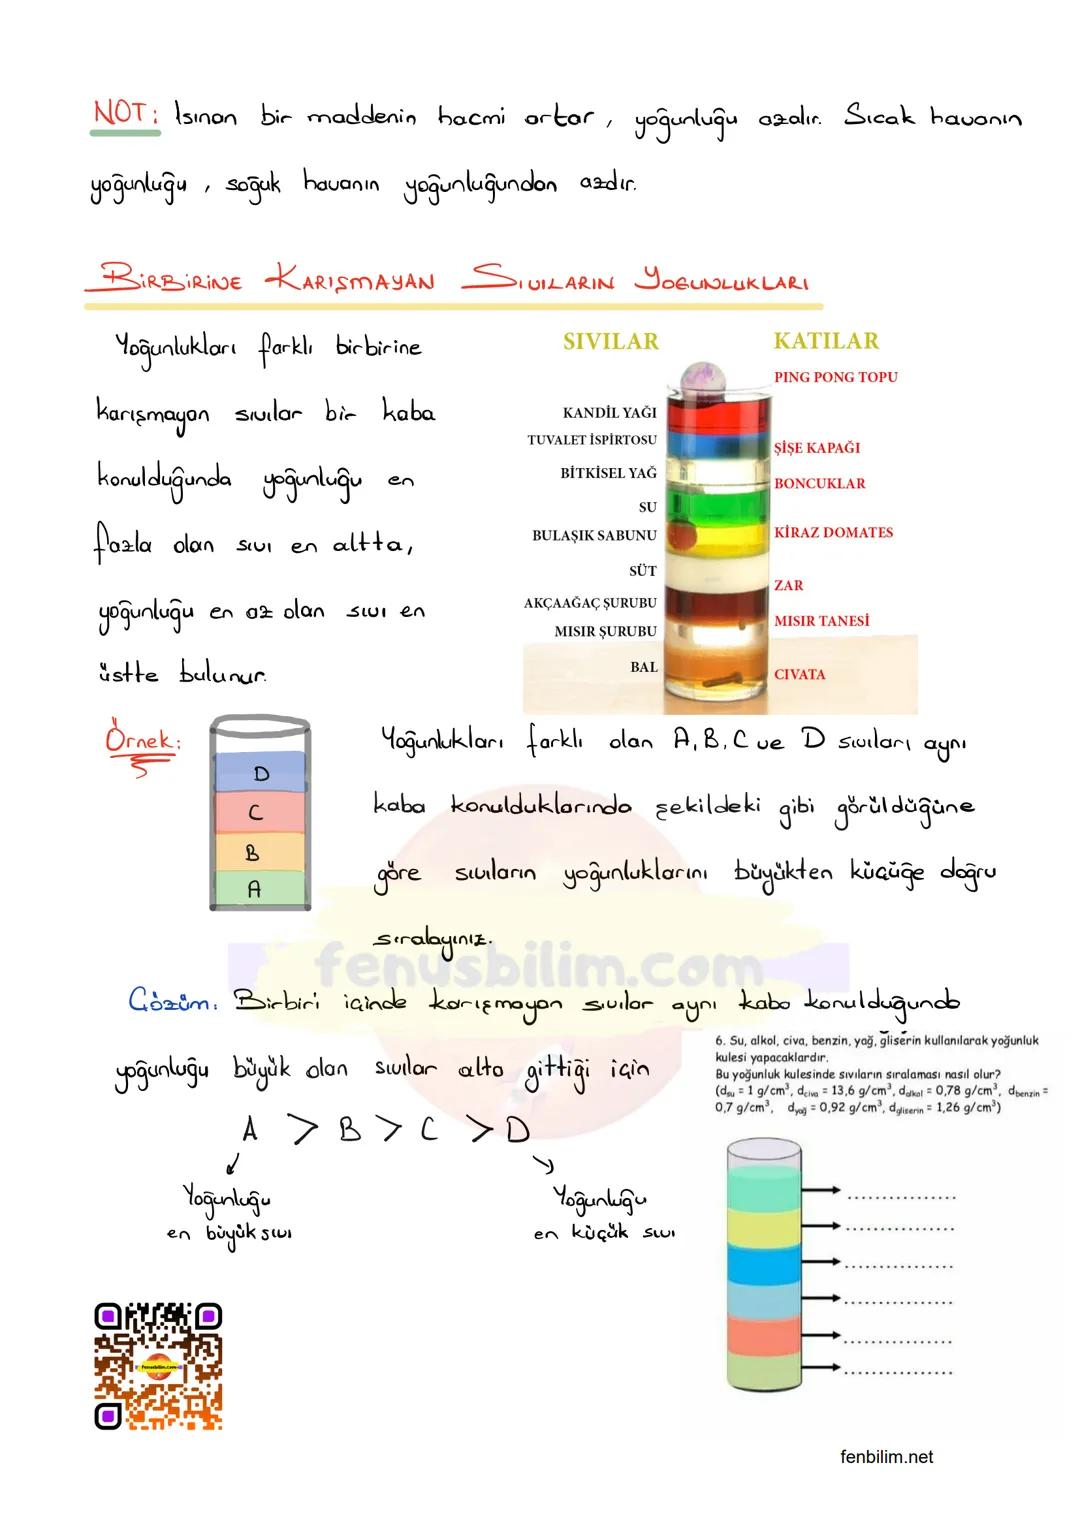 NOT: Isınan bir maddenin hacmi artar, yoğunluğu azalır. Sıcak havanın
yoğunluğu, soğuk havanın yoğunluğundan azdır.
BİRBİRİNE KARIŞMAYAN SIVILARIN YOĞUNLUKLARI
Yoğunlukları farklı birbirine
karışmayan sıvılar bir kaba
konulduğunda yoğunluğu en
fazla olan sıvı en altta,
yoğunluğu en az olan sıvı en
üstte bulunur.
SIVILAR
KANDİL YAĞI
TUVALET İSPİRTOSU
BİTKİSEL YAĞ
SU
BULAŞIK SABUNU
SÜT
AKÇAAĞAÇ ŞURUBU
MISIR ŞURUBU
BAL
KATILAR
PING PONG TOPU
ŞİŞE KAPAĞI
BONCUKLAR
KİRAZ DOMATES
ZAR
MISIR TANESİ
CIVATA
Örnek:
D
C
B
A
Yoğunlukları farklı olan A, B, C ve D sıvıları aynı
kaba konulduklarında şekildeki gibi görüldüğüne
göre sıvıların yoğunluklarını büyükten küçüğe doğru
sıralayınız.
fenusbilim.com
Çözüm: Birbiri içinde karışmayan sıvılar aynı kaba konulduğunda
yoğunluğu büyük olan sıvılar alta gittiği için
A > B > C > D
Yoğunluğu
en büyük sıvı
Yoğunluğu
en küçük sıvı
6. Su, alkol, civa, benzin, yağ, gliserin kullanılarak yoğunluk
kulesi yapacaklardır.
Bu yoğunluk kulesinde sıvıların sıralaması nasıl olur?
(dsu = 1 g/cm³, dciva = 13,6 g/cm³, dalkol = 0,78 g/cm³, dbenzin =
0,7 g/cm³, dyağ = 0,92 g/cm³, dgliserin = 1,26 g/cm³)
................
................
................
................
................
................
fenusbilim.com
fenbilim.net